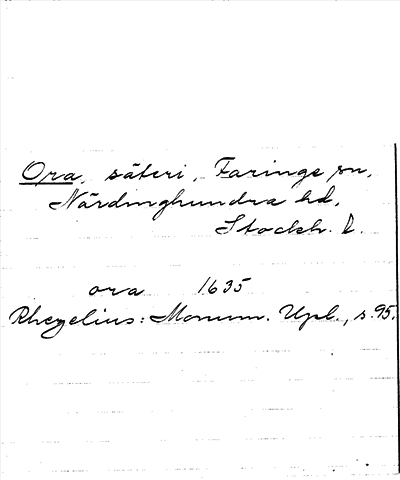 Ora, säteri, Faringe sn,
Närdinghundra hd,
Stockh. l.
ora 1635
Rhezelius: Monum. Upl., s.95.